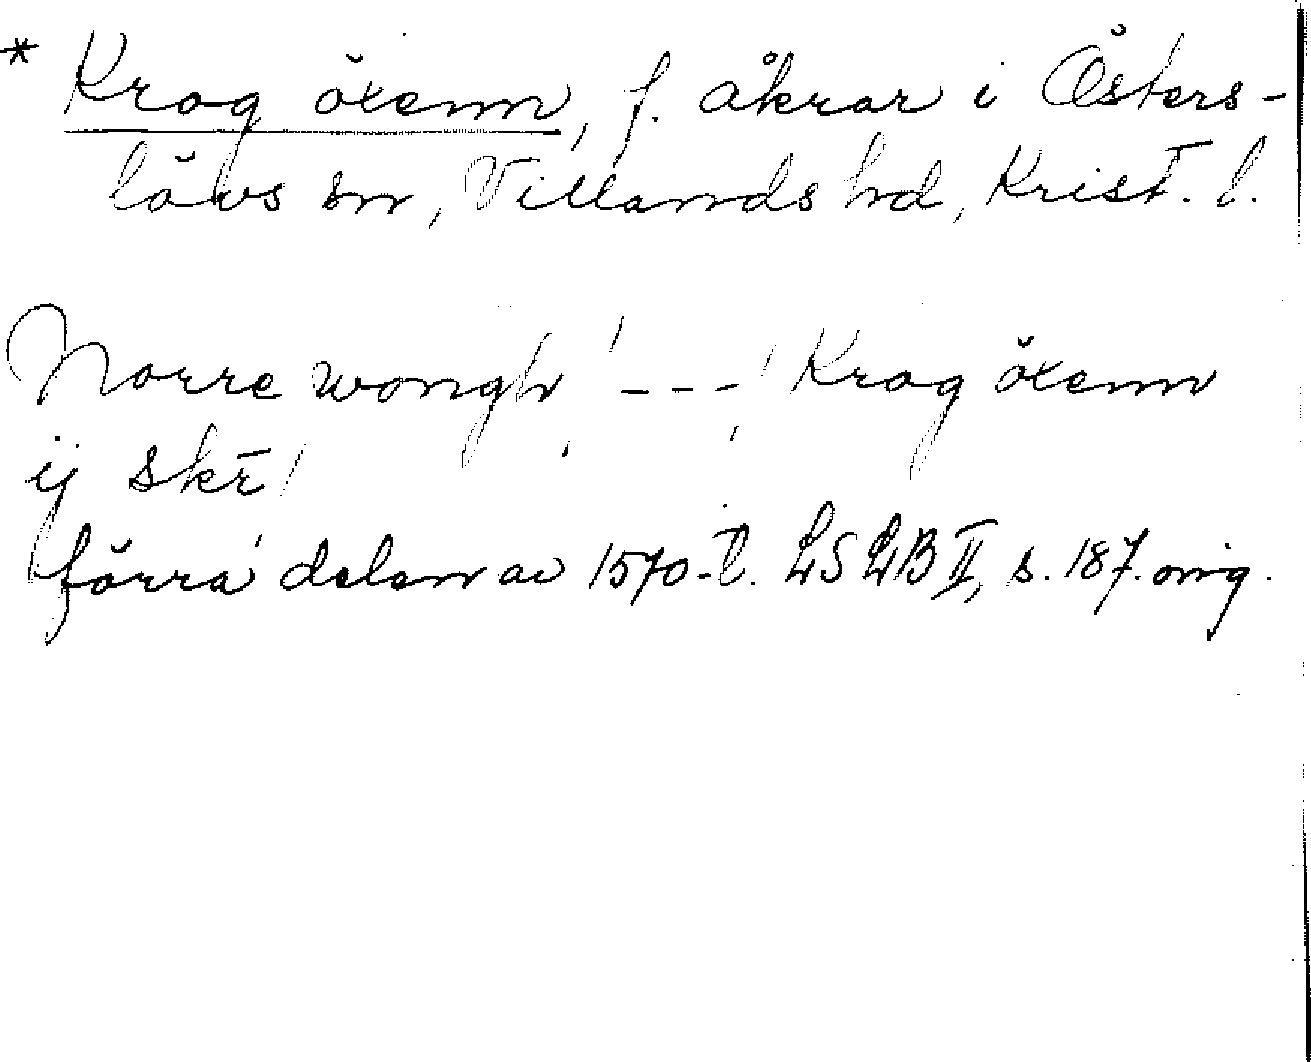 * Krog öxenn, f. åkrar i Östers-
lövs sn, Villands hd, Krist. l.
Norre wongh / - - - / Krog öxenn
ij skr /
förra delen av 1570-t. LSLB II, s. 187. orig.